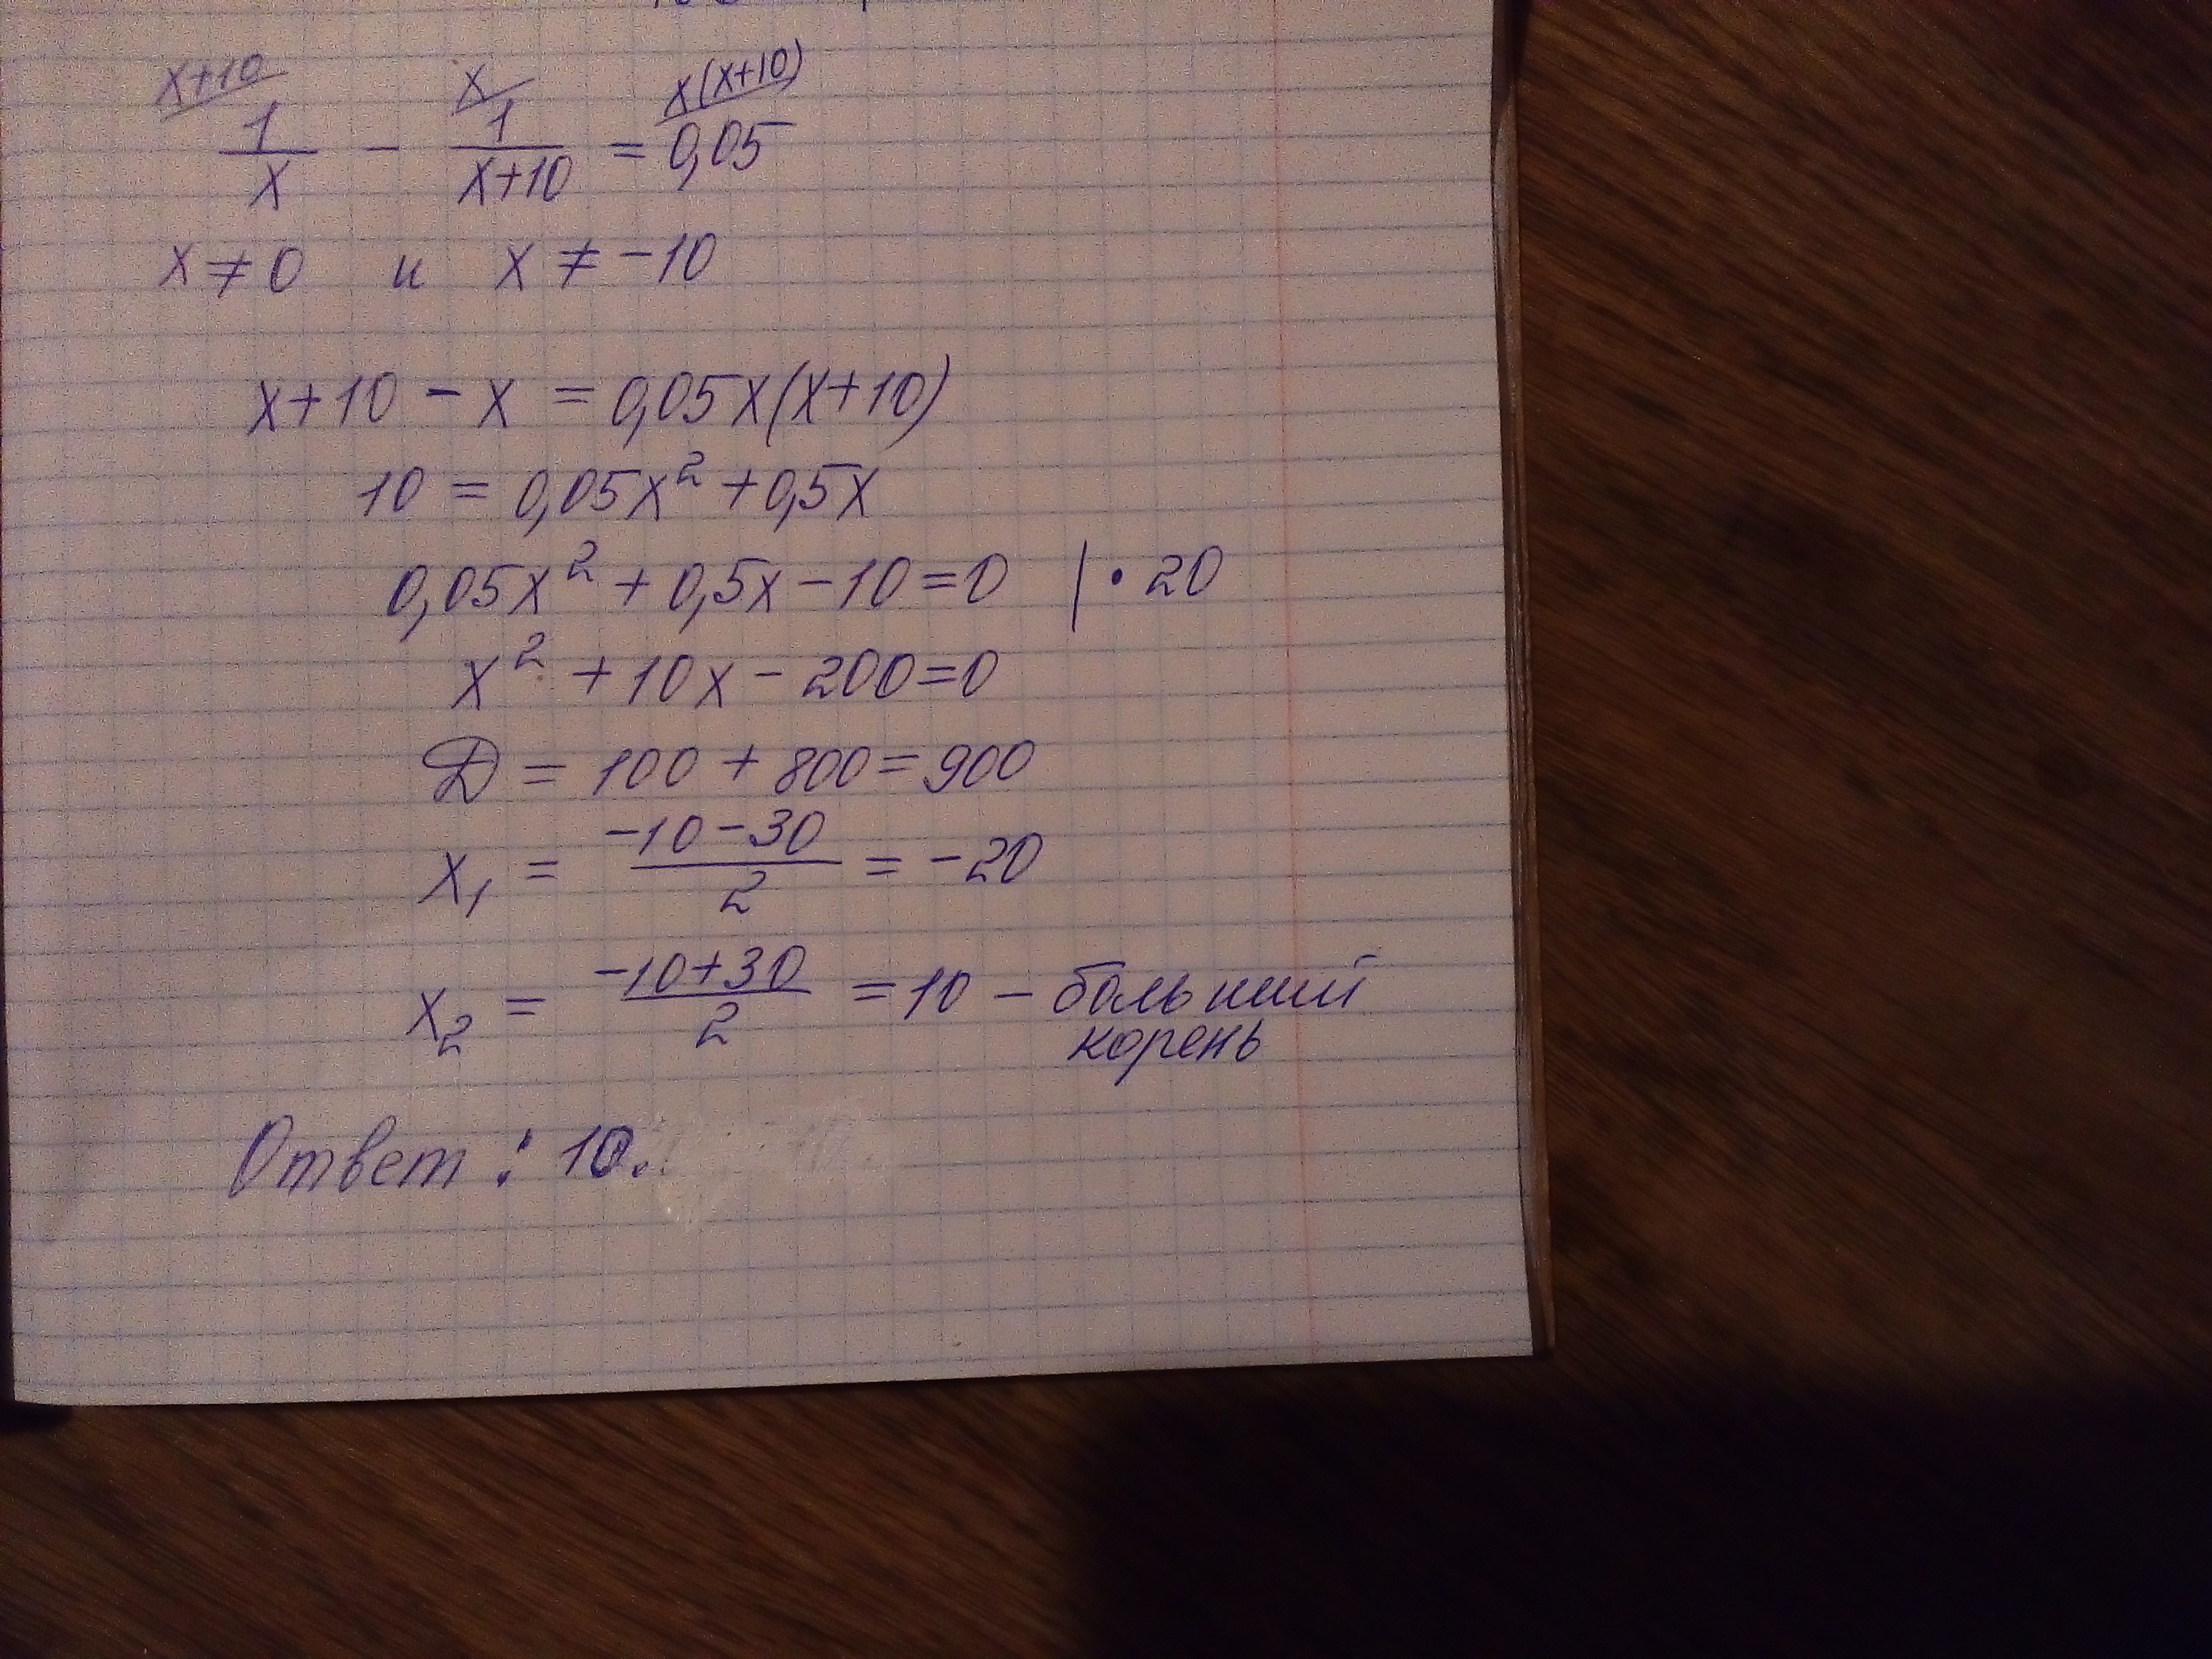 x+10 x x(x+10)
1/x − 1/(x+10) = 0,05
x ≠ 0 и x ≠ −10
x+10 − x = 0,05x(x+10)
10 = 0,05x² + 0,5x
0,05x² + 0,5x − 10 = 0 | • 20
x² + 10x − 200 = 0
D = 100 + 800 = 900
x₁ = (−10−30)/2 = −20
x₂ = (−10+30)/2 = 10 − больший
корень
Ответ: 10.